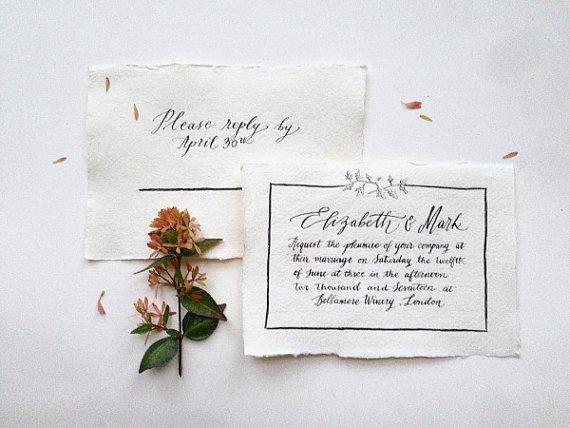 Please reply by
April 30th
Elizabeth & Mark
Request the pleasure of your company at
their marriage on Saturday the twelfth
of June at three in the afternoon
Two thousand and Seventeen at
Bellamere Winery, London